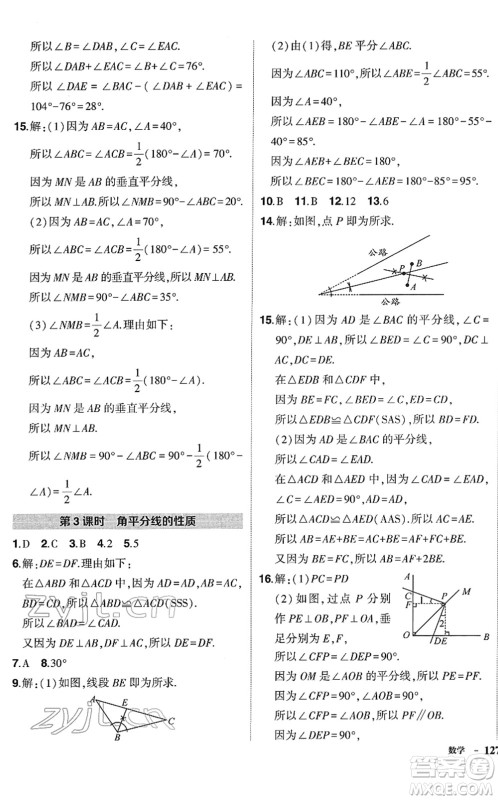 所以∠B=∠DAB,∠C=∠EAC.
所以∠DAB+∠EAC=76°.
所以∠DAE=∠BAC-(∠DAB+∠EAC)=
104°-76°=28°.
15.解:(1)因为AB=AC,∠A=40°,
所以∠ABC=∠ACB=1/2(180°-∠A)=70°.
因为MN是AB的垂直平分线,
所以∠NMB=90°-∠ABC=20°.
(2)因为AB=AC,∠A=70°,
所以∠ABC=∠ACB=1/2(180°-∠A)=
55°.
因为MN是AB的垂直平分线,
所以∠NMB=90°-∠ABC=35°.
(3)∠NMB=1/2∠A.理由如下:
因为AB=AC,
所以∠ABC=∠ACB=1/2(180°-∠A).
因为MN是AB的垂直平分线,
所以∠NMB=90°-∠ABC=90°-1/2(180°-
∠A)=1/2∠A.
第3课时 角平分线的性质
1.D 2.C 3.B 4.2 5.5
6.解:DE=DF.理由如下:
在△ABD和△ACD中,
因为AB=AC,DB=DC,AD=AD,
所以△ABD≌△ACD(SSS).
所以∠BAD=∠CAD.
又因为DE⊥AB,DF⊥AC,所以DE=DF.
7.A 8.30°
9.解:(1)如图,线段BE即为所求.
A
E
B
C
(2)由(1)得,BE平分∠ABC.
因为∠ABC=110°,所以∠ABE=1/2∠ABC=55°.
因为∠ABE+∠A+∠AEB=180°,
所以∠AEB=180°-∠ABE-∠A=180°-55°-
40°=85°.
10.B 11.B 12.12 13.6
14.解:如图,点P即为所求.
公路
B
P
A
公路
15.解:(1)因为AD是∠BAC的平分线,∠C=
90°,DE⊥AB,所以∠BED=90°,DC=DE.
在△EDB和△CDF中,
因为BE=FC,∠BED=∠C=90°,DE=DC,
所以△EDB≌△CDF(SAS),所以BD=DF.
(2)因为AD是∠BAC的平分线,
所以∠CAD=∠EAD.
又因为∠C=∠AED=90°,AD=AD,
所以△CAD≌△EAD.所以AC=AE.
所以AB=AE+BE=AC+BE=AF+FC+BE=
AF+2BE.
16.解:(1)PC=PD
(2)如图,过点P分别
作PE⊥OB,PF⊥OA,
垂足分别为E,F,
所以∠CFP=∠DEP=90°.
因为OM是∠AOB的平分线,所以PE=PF.
因为∠1+∠FPD=90°,∠AOB=90°,
所以∠FPE=90°,
A
C
M
F
P
1
2
O
DE
B
数学 - 127
zyjl.cn
zyjl.cn